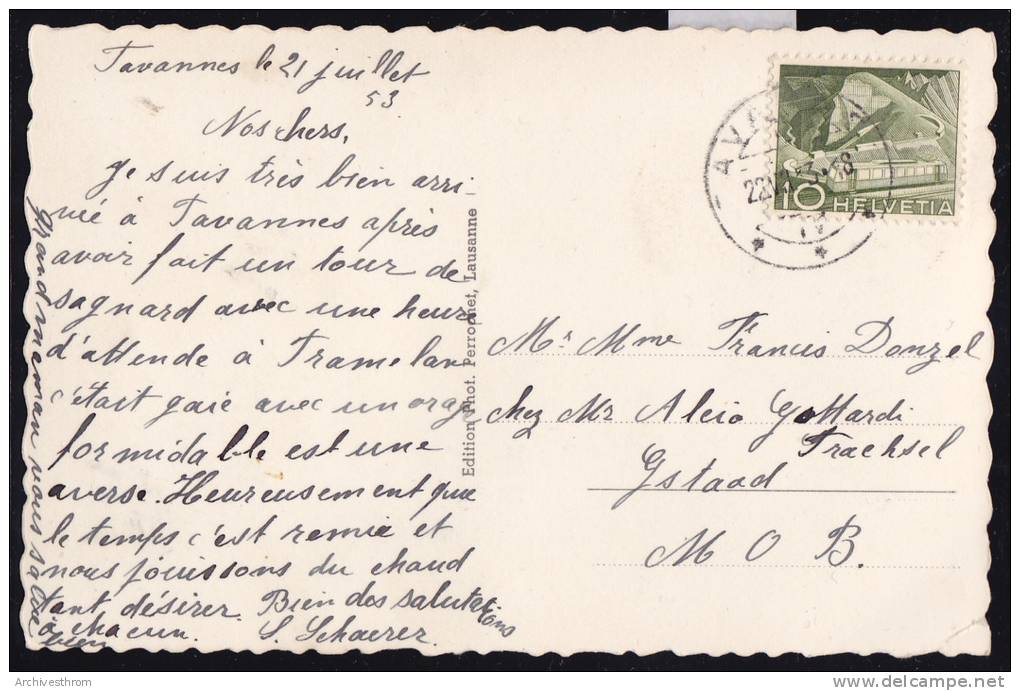 Tavannes le 21 juillet
53
Nos chers,
Je suis très bien arri-
vée à Tavannes après
avoir fait un tour de
sagnard avec une heure
d'attende à Tramelan
c'était gaie avec un orage
formidable est une
averse. Heureusement que
le temps c'est remie et
nous jouissons du chaud
tant désirer. Bien des salutations
à chacun. S. Schaerer.
grand maman vous salue
bien
Edition Phot. Perrochet, Lausanne
10 HELVETIA
Mr Mme Francis Donzel
chez Mr Alcio Gottardi
Trachsel
Gstaad
M O B.
Archivesthrom
delcampe.net